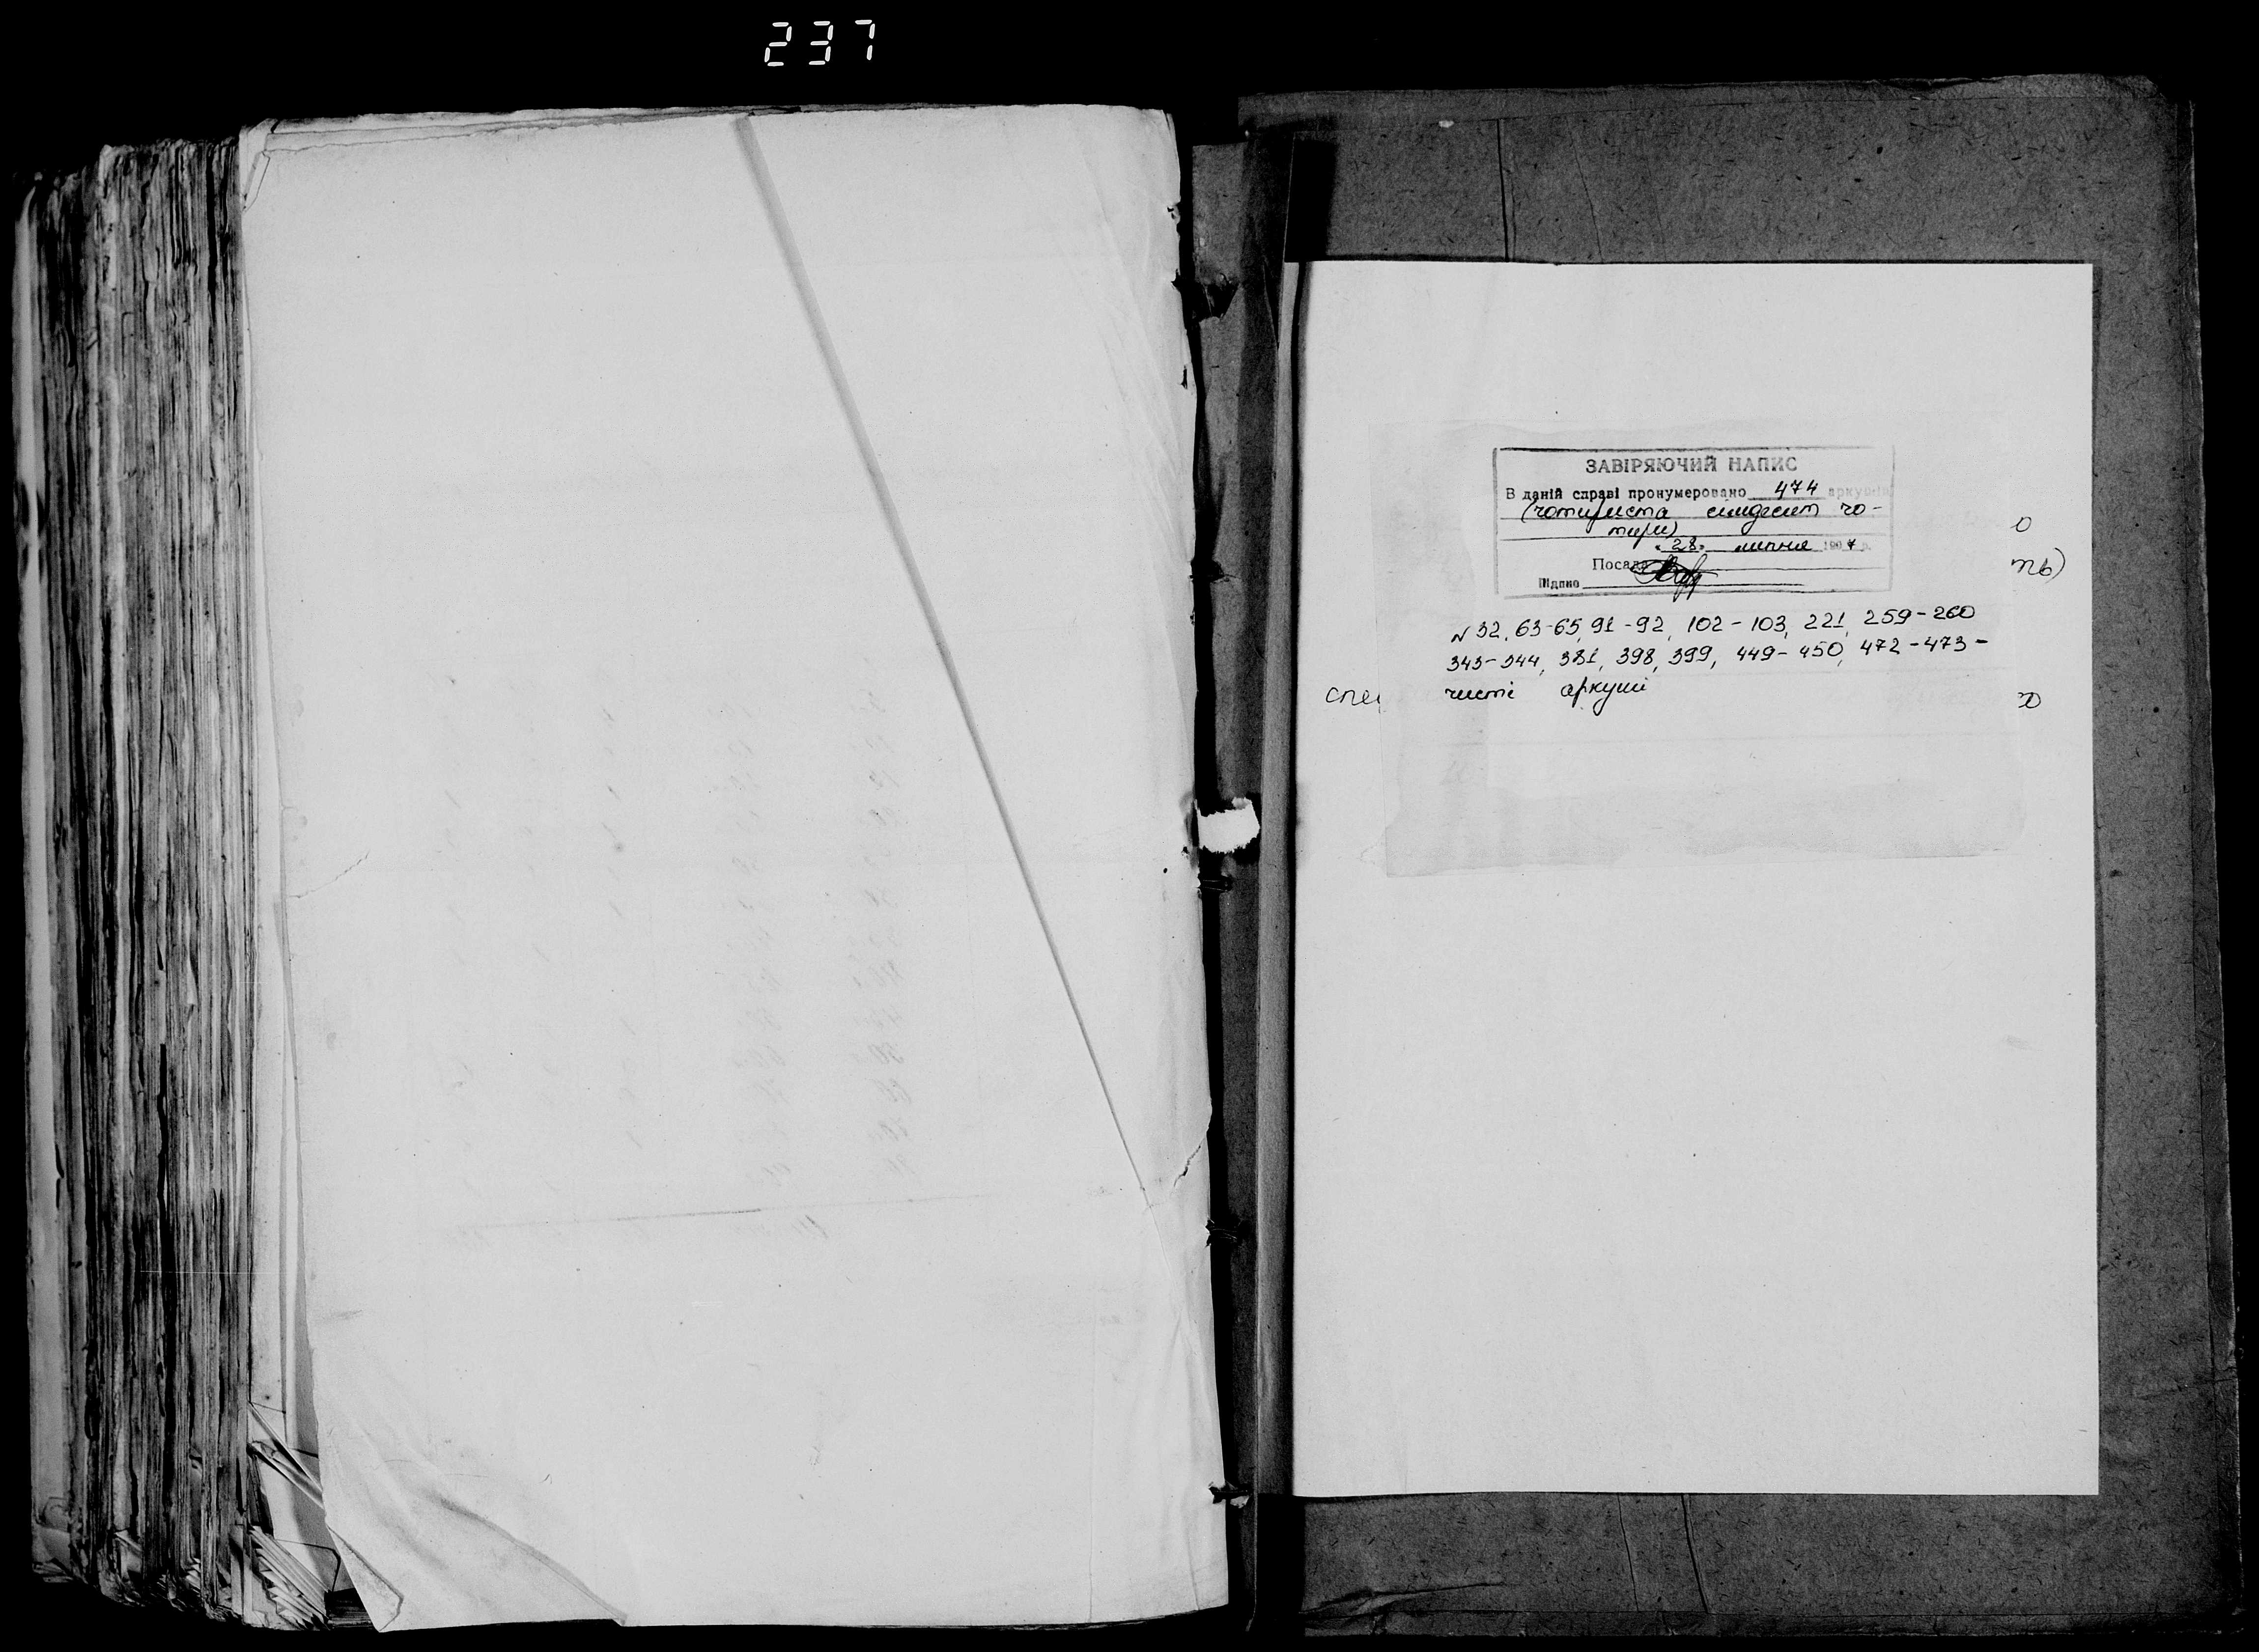 237
ЗАВІРЯЮЧИЙ НАПИС
В даній справі пронумеровано 474 аркушів
(чотириста сімдесят чо-
тири)
"28" липня 1997 р.
Посада
Підпис
№ 32, 63-65, 91-92, 102-103, 221, 259-260
343-344, 381, 398, 399, 449-450, 472-473-
чисті аркуші
о
ть)
спе